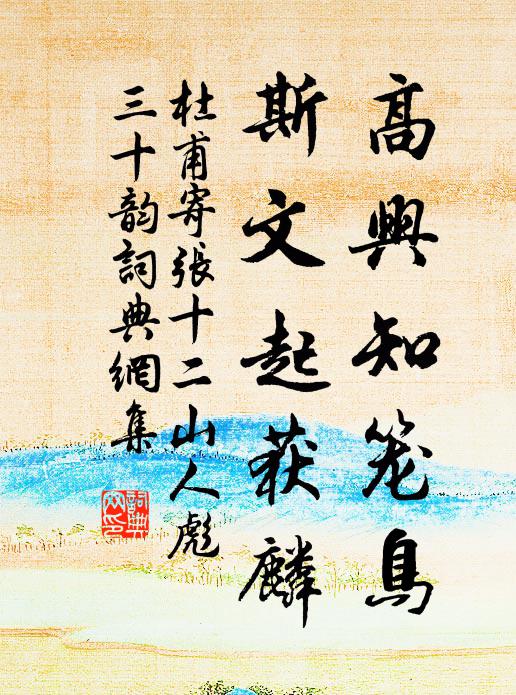 高興知笼鳥
斯文起获麟
杜甫寄張十二山人彪
三十韵詞典網集
詞典网印